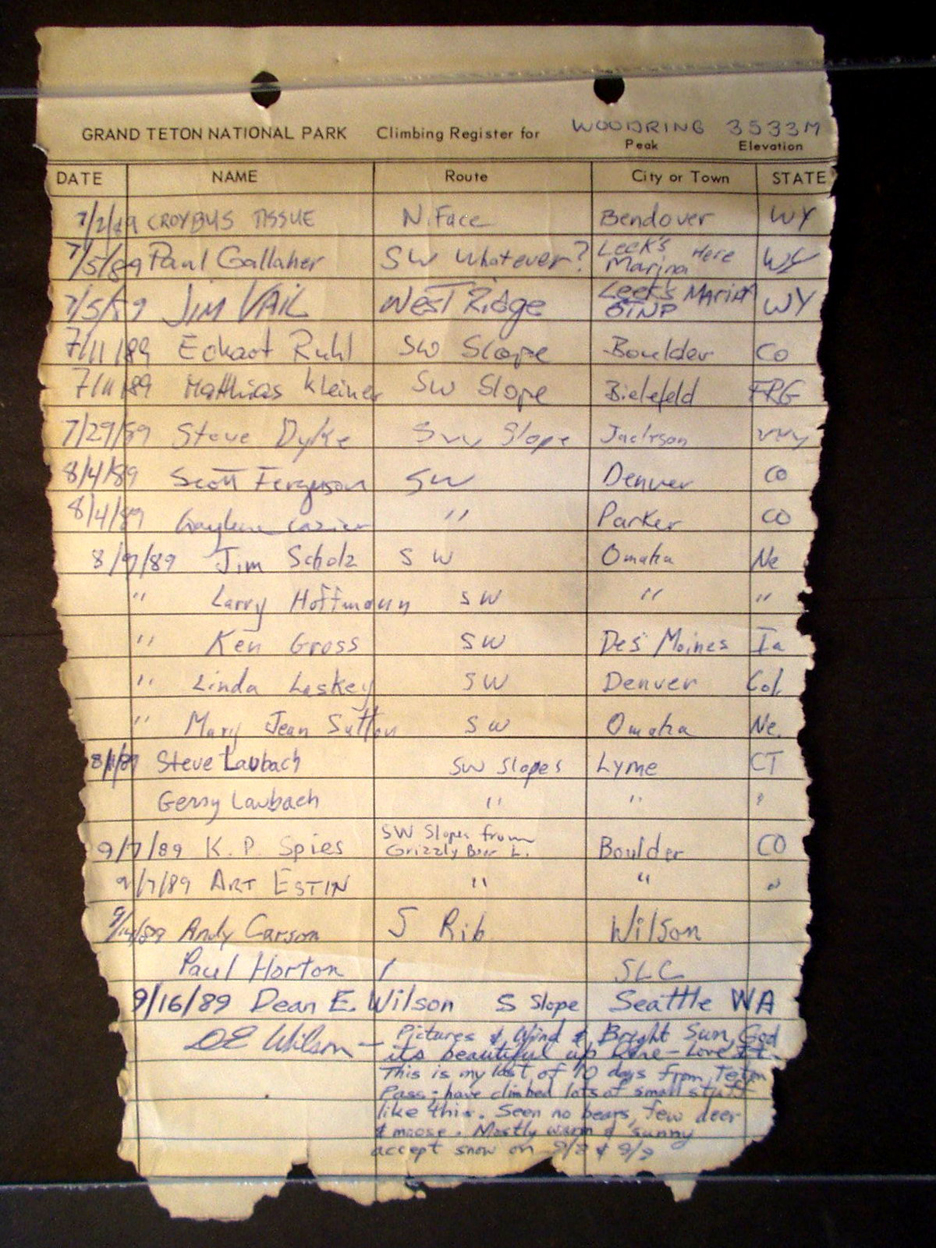 GRAND TETON NATIONAL PARK Climbing Register for WOODRING 3533M
Peak Elevation
DATE NAME Route City or Town STATE
7/2/89 CROYBUS TISSUE N. Face Bendover WY
7/5/89 Paul Gallaher SW Whatever? Leek's Marina Here WY
7/5/89 JIM VAIL West Ridge Leek's Marina GTNP WY
7/11/89 Eckart Ruhl SW Slope Boulder CO
7/11/89 Matthias Kleiner SW Slope Bielefeld FRG
7/29/89 Steve Dyke SW Slope Jackson WY
8/4/89 Scott Ferguson SW Denver CO
8/4/89 Gaylene Cazier " Parker CO
8/9/89 Jim Scholz SW Omaha Ne
" Larry Hoffmann SW " "
" Ken Gross SW Des Moines Ia
" Linda Laskey SW Denver Col.
" Mary Jean Sutton SW Omaha Ne.
Steve Laubach SW Slopes Lyme CT
Gerry Laubach " " "
9/7/89 K.P. Spies SW Slopes from Grizzly Bear L. Boulder CO
9/7/89 ART ESTIN " " "
9/14/89 Andy Carson S Rib Wilson
Paul Horton / SLC
9/16/89 Dean E. Wilson S Slope Seattle WA
DE Wilson — Pictures & Wind & Bright Sun, God
its beautiful up here - Love It -
This is my last of 10 days from Teton
Pass - have climbed lots of small stuff
like this. Seen no bears, few deer
& moose. Mostly warm & sunny
accept snow on 9/8 & 9/9